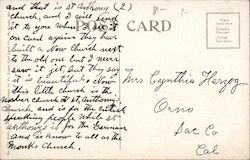 and that is St Anthony (2)
church, and I will send
it to you when I see it
on card again they have
built a New Church next
to the old one but I never
saw it yet, but they say
it is beautiful. Now
this little church is the
mother church of St. Anthony
church, and is for the
speaking people while St
Anthonys is for the Germans
and is know to all as the
Monks Church.
POST CARD
Mrs Cynthia Herzog
Orno
Sac Co
Cal